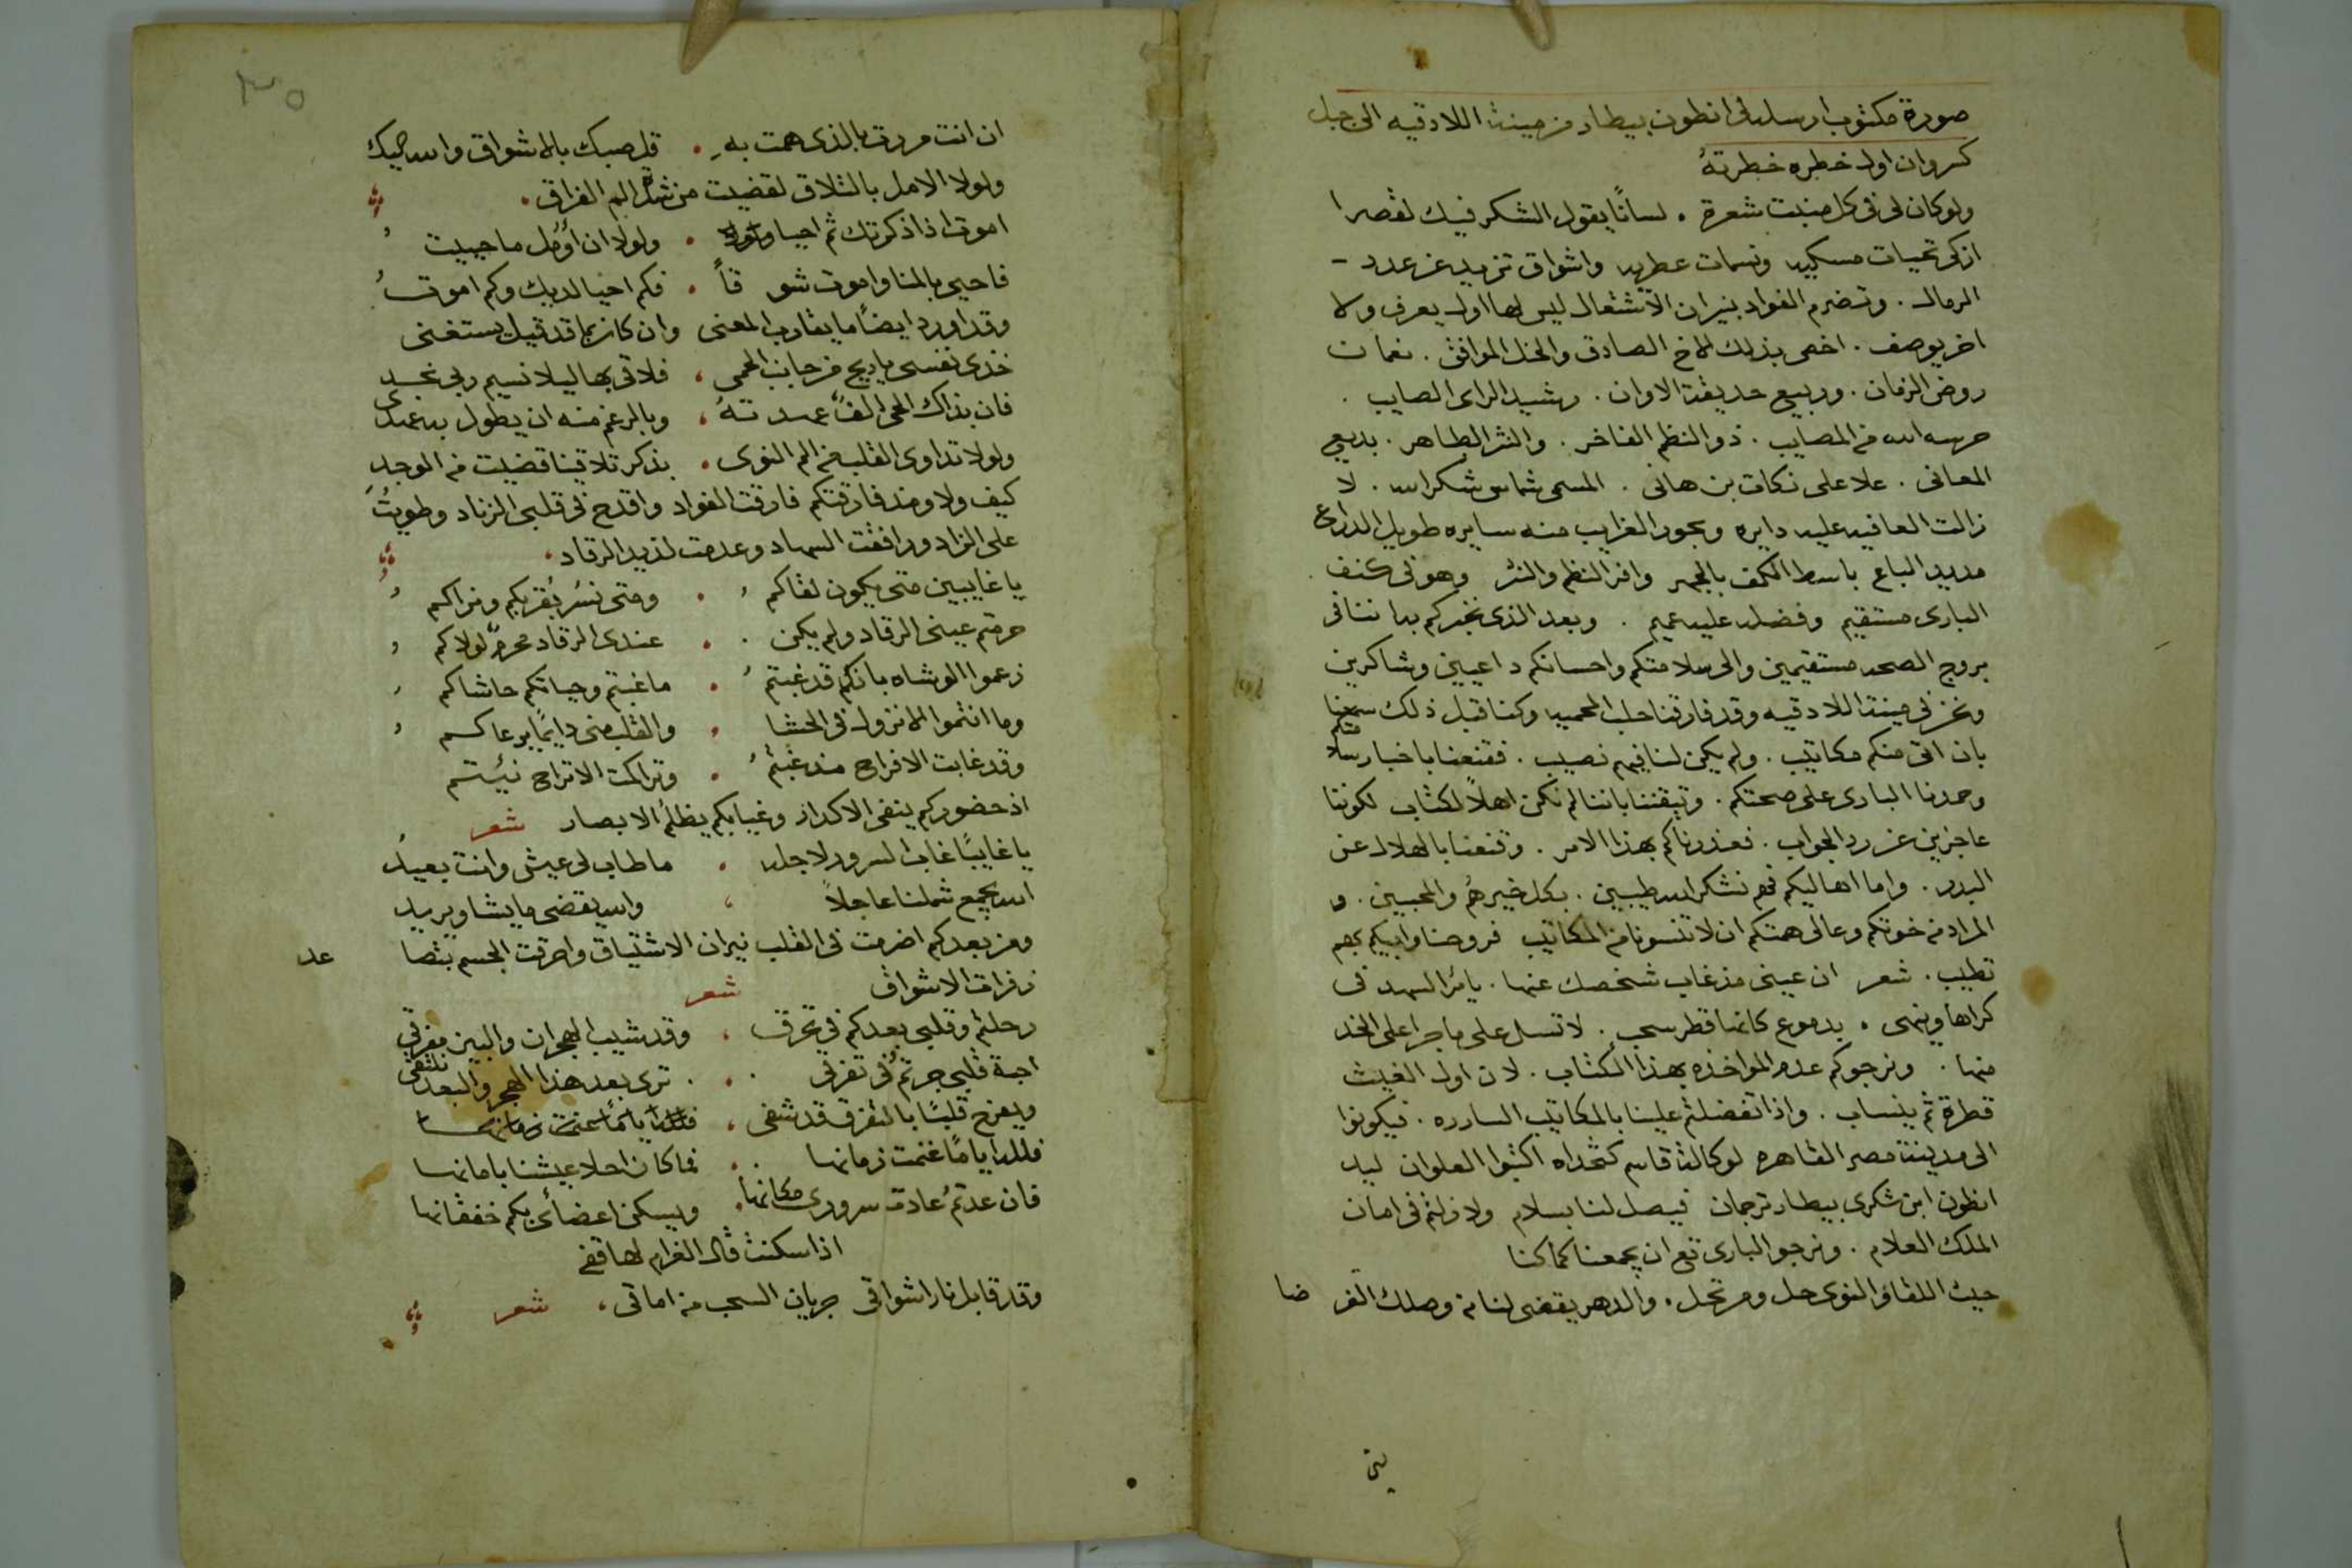 صورة مكتوب ارسله لى انطون بيطار من مينة اللادقيه الى جبل
كسروان اول خطره خطرته
ولو كان لى فى كل منبت شعرة . لسانًا يقول الشكر فيك لقصرا
ازكى تحيات مسكيه ونسمات عطريه واشواق تزيد عن عدد
الرمال . وتضرم الفواد بنيران الاشتعال ليس لها اول يعرف ولا
اخر يوصف . اخص بذلك للاخ الصادق والخل الموافق . نعمان
روض الزمان . وربيع حديقة الاوان . رشيد الراى الصايب .
حرسه الله من المصايب . ذو النظم الفاخر . والنثر الطاهر . بديعي
المعانى . علا على نكات بن هانى . المسمى شماس شكرالله . لا
زالت العافيه عليه دايره وبحور الغرايب منه سايره طويل الدراع
مديد الباع باسط الكف بالجبر وافر النظم والنثر وهو فى كنف
البارى مستقيم وفضله عليه عميم . وبعد الذى نخبركم به اننا فى
بروج الصحه مستقيمين والى سلامتكم واحسانكم داعيين وشاكرين
ونحن فى مينة اللادقيه وقد فارقنا حلب المحميه وكنا قبل ذلك سمعنا
بان اتى منكم مكاتيب . ولم يكن لنا فيهم نصيب . فقنعنا باخبار سلامتكم
وحمدنا البارى على صحتكم . وتيقننا باننا لم نكن اهلاً لكتاب لكوننا
عاجزين عن رد الجواب . فعذرناكم بهذا الامر . وقنعنا بالهلال عن
البدر . واما اهاليكم فهم نشكر الله طيبين . بكل خير هم والمحبين . و
المراد من خوتكم وعالى همتكم ان لا تنسونا من المكاتيب فروحنا وابيكم بهم
تطيب . شعر ان عينى مذ غاب شخصك عنها . يامر السهد فى
كراها وينهى . بدموع كانها قطر سحب . لا تسل على ما جرا على الخد
منها . ونرجوكم عدم المواخذه بهذا الكتاب . لان اول الغيث
قطرة ثم ينساب . واذا تفضلتم علينا بالمكاتيب الساره . فيكونوا
الى مدينة مصر القاهره لوكالة قاسم كتخداه اكتبوا العلوان ليد
انطون ابن شكرى بيطار ترجمان فيصل لنا بسلام ولا زلتم فى امان
الملك العلام . ونرجو البارى تع ان يجمعنا كما كنا
حيث اللقا والنوى حل ومرتحل . والدهر يقضى لنا من وصلك الغر ضا
ان انت مررت بالذى همت به . قل صبك بالاشواق والله حيك
ولولا الامل بالتلاق لقضيت من شدة الم الفراق .
اموت اذا ذكرتك ثم احيا . ولولا ان أؤمل ما حييت
فاحيى بالمنا واموت شوقاً . فكم احيا لديك وكم اموت
وقد اورد ايضاً ما يقارب المعنى وان كان بما قد قيل يستغنى
خذى نفسى يا ريح من جانب الحمى ، فلاقى بها ليلا نسيم ربى نجد
فان بذاك الحى الفً عهدته ، وبالرغم منه ان يطول به عهدى
ولولا تداوى القلب من الم النوى . بذكر تلاقينا قضيت من الوجد
كيف ولا ومذ فارقتكم فارقت الفواد واقدح فى قلبى الزناد وطويت
على الزاد ورافقت السهاد وعدمت لذيد الرقاد .
يا غايبين متى يكون لقاكم . ومتى نسر بقربكم ونراكم
حرمتم عينى الرقاد ولم يكن . عندى الرقاد محرمٌ لولاكم
زعموا الوشاه بانكم قد غبتم . ما غبتم وحياتكم حاشاكم
وما انتموا الا نزول فى الحشا . والقلب منى دايمًا يرعاكم
وقد غابت الافراح مذ غبتم . وتراكمت الاتراح
اذ حضوركم ينفى الاكدار وغيابكم يظلم الابصار شعر
يا غايبًا غاب السرور لاجله . ما طاب لى عيشى وانت بعيد
الله يجمع شملنا عاجلاً ، والله يقضى ما يشا ويريد
ومن بعدكم اضرمت فى القلب نيران الاشتياق واحرقت الجسم بتصا عد
زفرات الاشواق شعر
رحلتم وقلبى بعدكم فى تحرق . وقد شيب الهجران والبين مفرقى
احبة قلبى جرتم فى تفرقى . ترى بعد هذا الهجر والبعد نلتقى
ويفرح قلبًا بالتفرق قد شقى ،
فلله اياماً غنمت زمانها . فما كان احلا عيشنا بامانها
فان عدتم عادت سرورى مكانها . ويسكن اعضائى بكم خفقانها
اذا سكنت قال الغرام لها قفى
وقد قابل نار اشواقى جريان السحب من اماقى . شعر